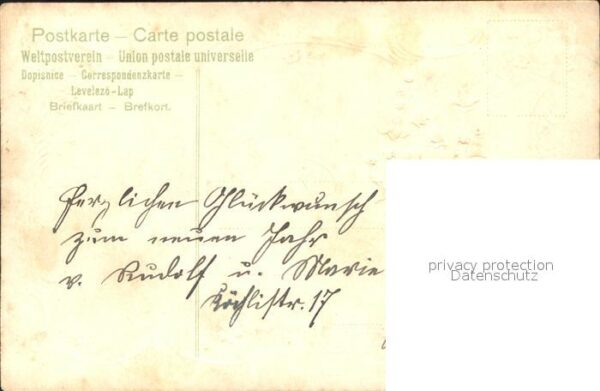 Postkarte — Carte postale
Weltpostverein - Union postale universelle
Dopisnice — Correspondenzkarte —
Levelező-Lap
Briefkaart — Brefkort.
Herzlichen Glückwunsch
zum neuen Jahr
v. Rudolf u. Marie
Köchlistr. 17
privacy protection
Datenschutz